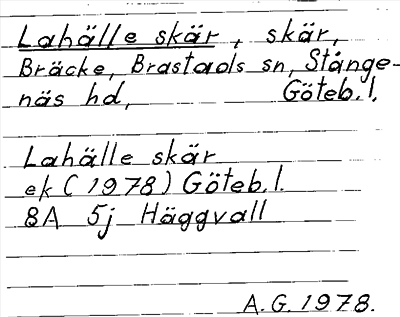 Lahälle skär, skär,
Bräcke, Brastads sn, Stånge-
näs hd, Göteb.l.
Lahälle skär
ek (1978) Göteb.l.
8A 5j Häggvall
A.G. 1978.